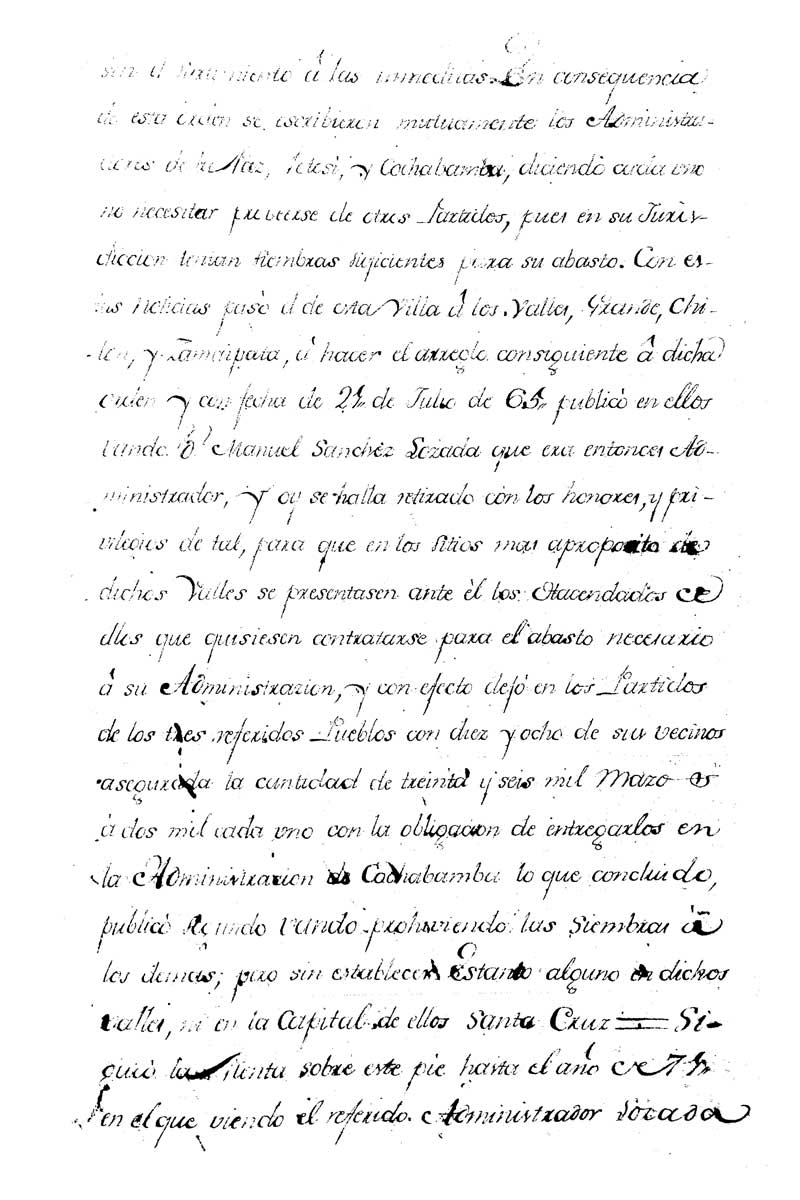 â las inmediatas. En consequencia
de esta orden se escribieron mutuamente los Administra-
dores de la Paz, Potosi, y Cochabamba, diciendo cada uno
no necesitar proveerse de otros Partidos, pues en su Juris-
diccion tenian siembras suficientes para su abasto. Con es-
tas noticias pasò el de esta Villa â los Valles, Grande, Chi-
lon, y Samaipata, â hacer el arreglo consiguiente â dicha
orden y con fecha de de Julio de publicò en ellos
vando Dn. Manuel Sanchez Lozada que era entonces Ad-
ministrador, y oy se halla retirado con los honores, y pri-
vilegios de tal, para que en los sitios mas aproposito de
dichos Valles se presentasen ante èl los Hacendados de
ellos que quisiesen contratarse para el abasto necesario
â su Administrazion, y con efecto dejó en los Partidos
de los tres referidos Pueblos con diez y ocho de sus vecinos
asegurada la cantidad de treinta y seis mil Mazos
â dos mil cada uno con la obligacion de entregarlos en
la Administrazion de Cochabamba lo que concluido,
publicò segundo vando prohiviendo las Siembras â
los demas; pero sin establecer Estanco alguno en dichos
Valles, ni en la Capital de ellos Santa Cruz = Si-
guiò la Renta sobre este pie hasta el año de
en el que viendo el referido Administrador Lozada